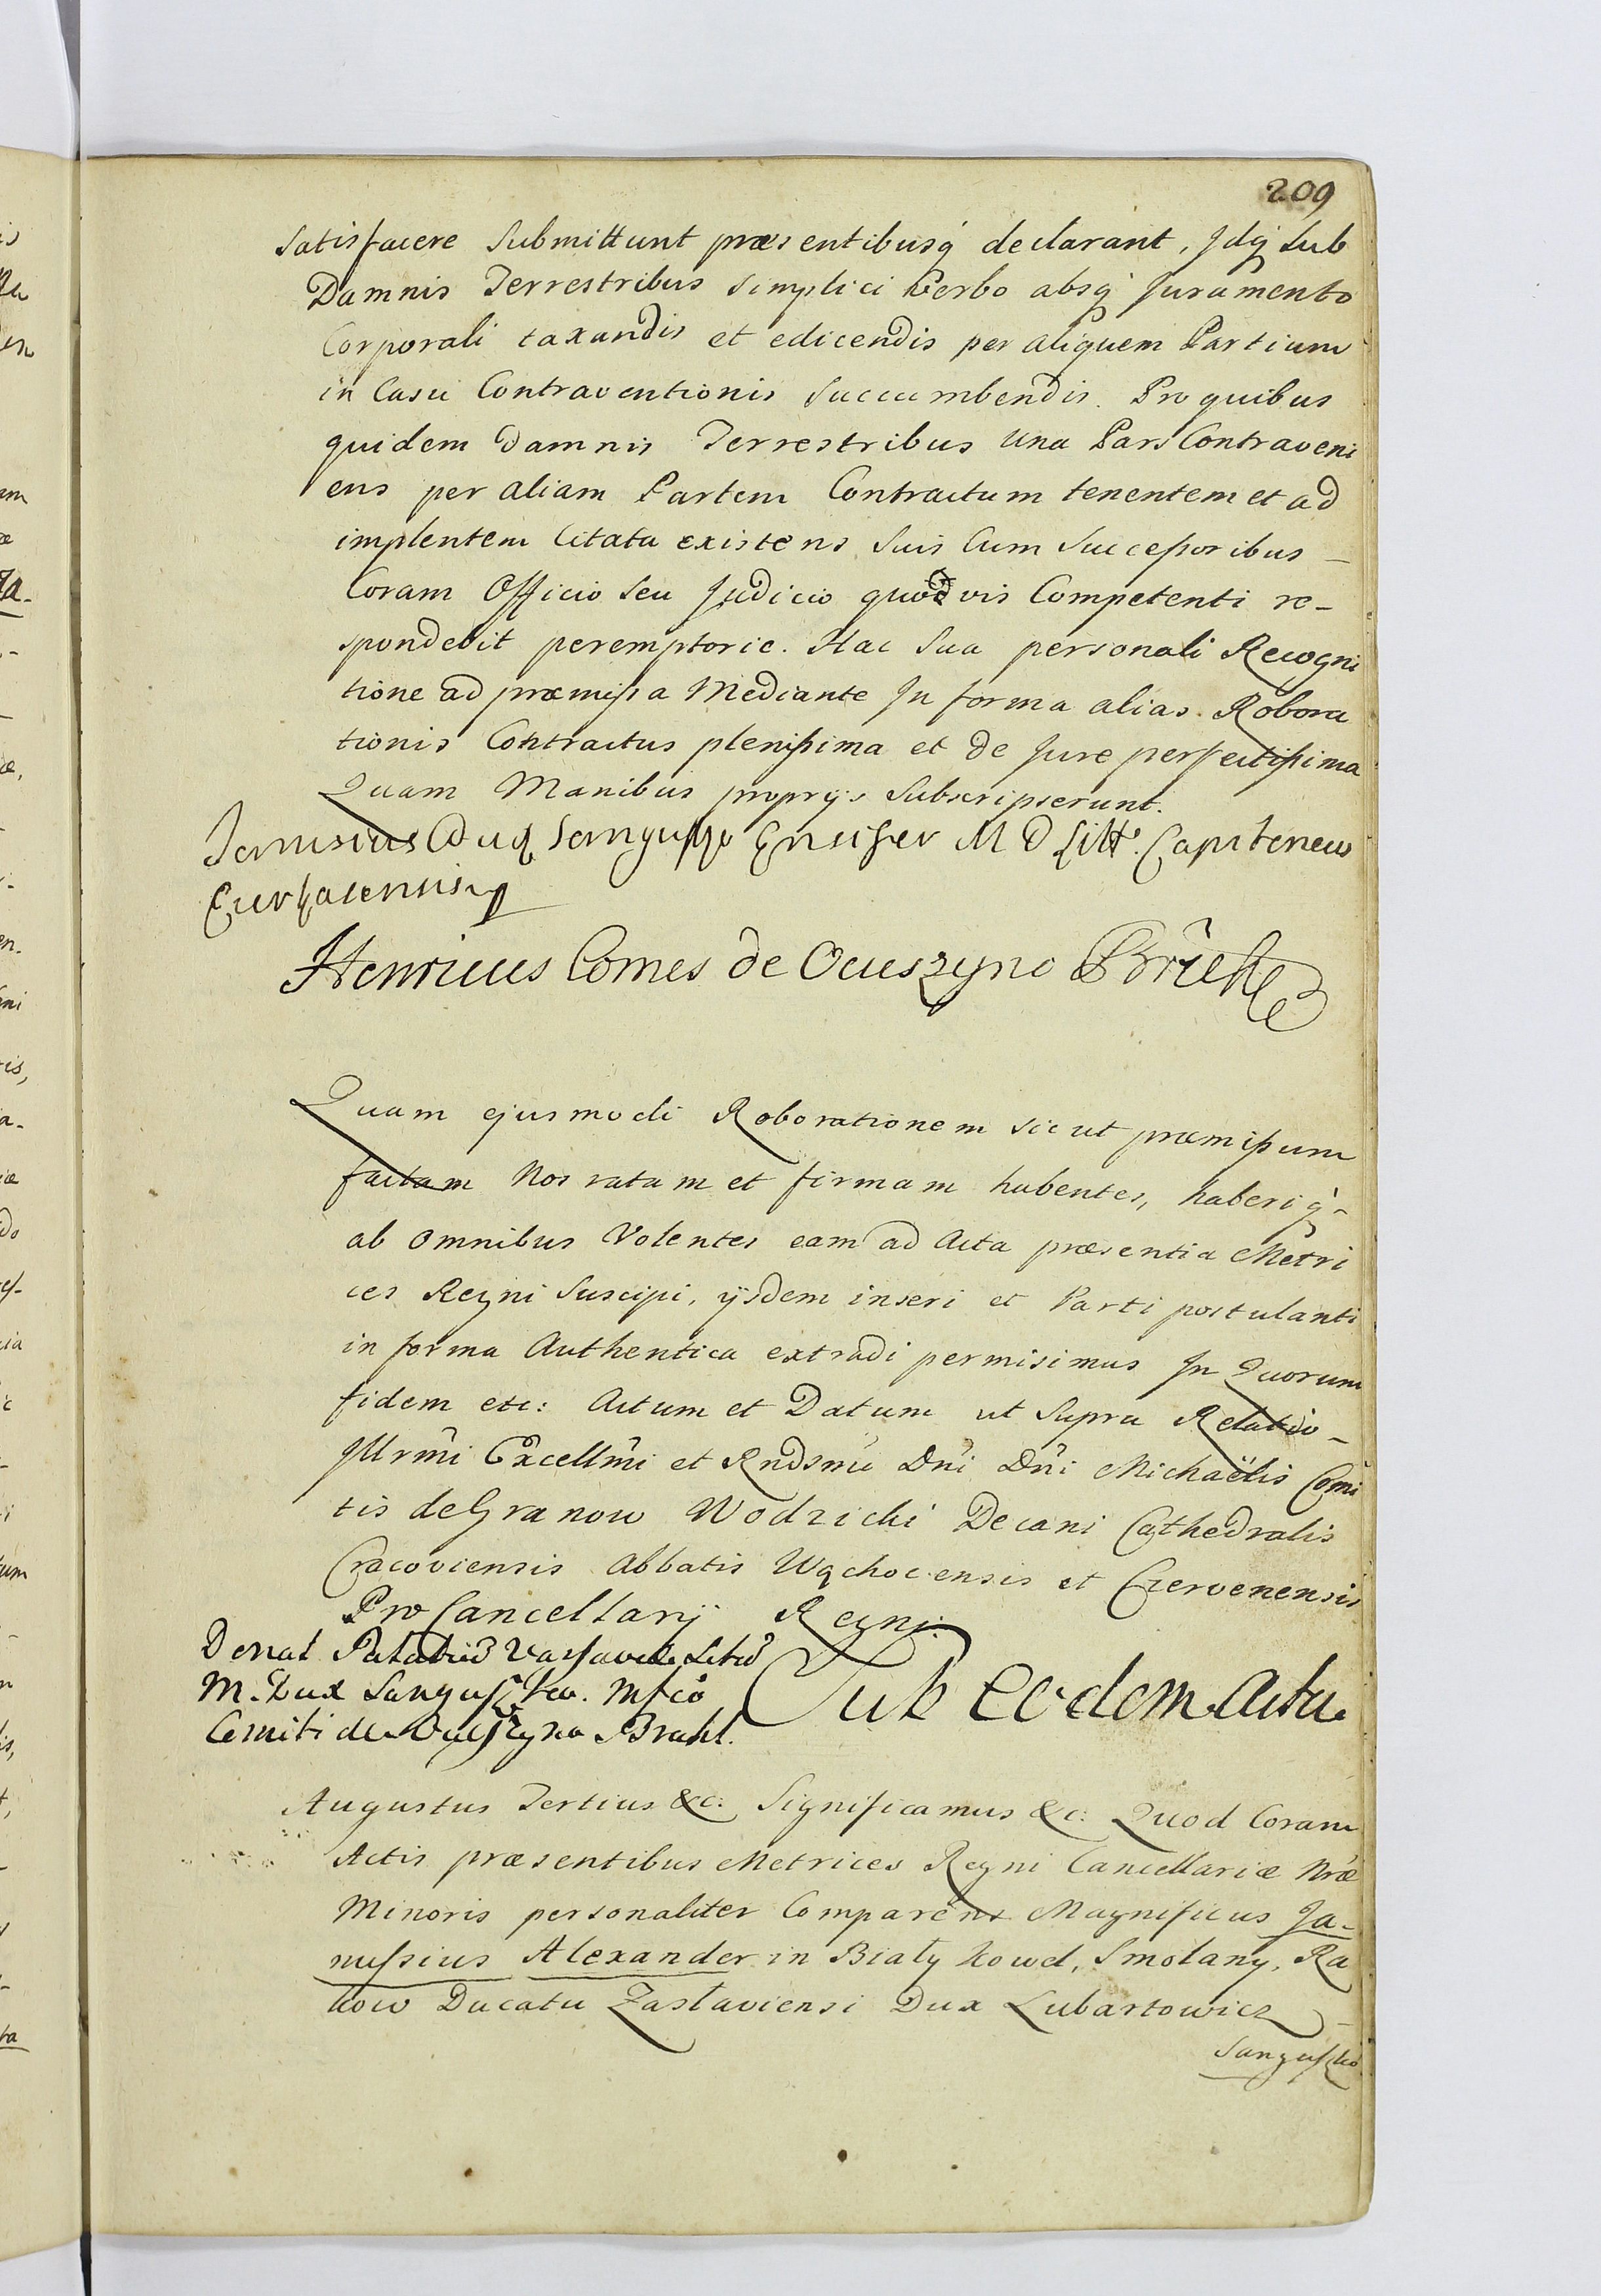 209
Satisfacere Submittunt præsentibusq́ declarant, Jdq́ Sub
Damnis Terrestribus simplici Verbo absq́ Juramento
Corporali taxandis et edicendis per aliquem Partium
in Casu Contraventionis Succumbendis. Pro quibus
quidem Damnis Terrestribus Una Pars Contraveni
ens per aliam Partem Contractum tenentem et ad
implentem Citata existens Suis Cum Successoribus
Coram Officio Seu Judicio quodvis Competenti re-
spondebit peremptorie. Hac Sua personali Recogni
tione ad præmissa Mediante Jn forma alias Robora
tionis Contractus plenissima et de Jure perfectissima
Quam Manibus proprijs Subscripserunt.
Janusius Dux Sanguszko Ensifer M D Litt. Capitaneus
Czerkasensis
Henricus Comes de Ocieszyno Brühl
Quam ejusmodi Roborationem sicut præmissum
factam Nos ratam et firmam habentes, haberiq́-
ab Omnibus Volentes eam ad Acta præsentia Metri
ces Regni Suscipi, ijsdem inseri et Parti postulanti
in forma Authentica extradi permisimus Jn Quorum
fidem etc: Actum et Datum ut Supra Relatio-
Jllrmi Excellmi et Rndsmi Dni Dni Michaëlis Comi
tis de Granow Wodzicki Decani Cathedralis
Cracoviensis Abbatis Wąchocensis et Czervenensis
Pro Cancellarij Regni.
Donat Palatiũ Varsaviæ Situ
M. Dux Sanguszko. Mfco
Comiti de Ocieszyno Bruhl.
Sub eodem Actu
Augustus Tertius &c: Significamus &c: Quod Coram
Actis præsentibus Metrices Regni Cancellariæ Nræ
Minoris personaliter Comparens Magnificus Ja-
nussius Alexander in Biały Kowel, Smolany, Ra
kow Ducatu Zaslaviensi Dux Lubartowicz
Sanguszko